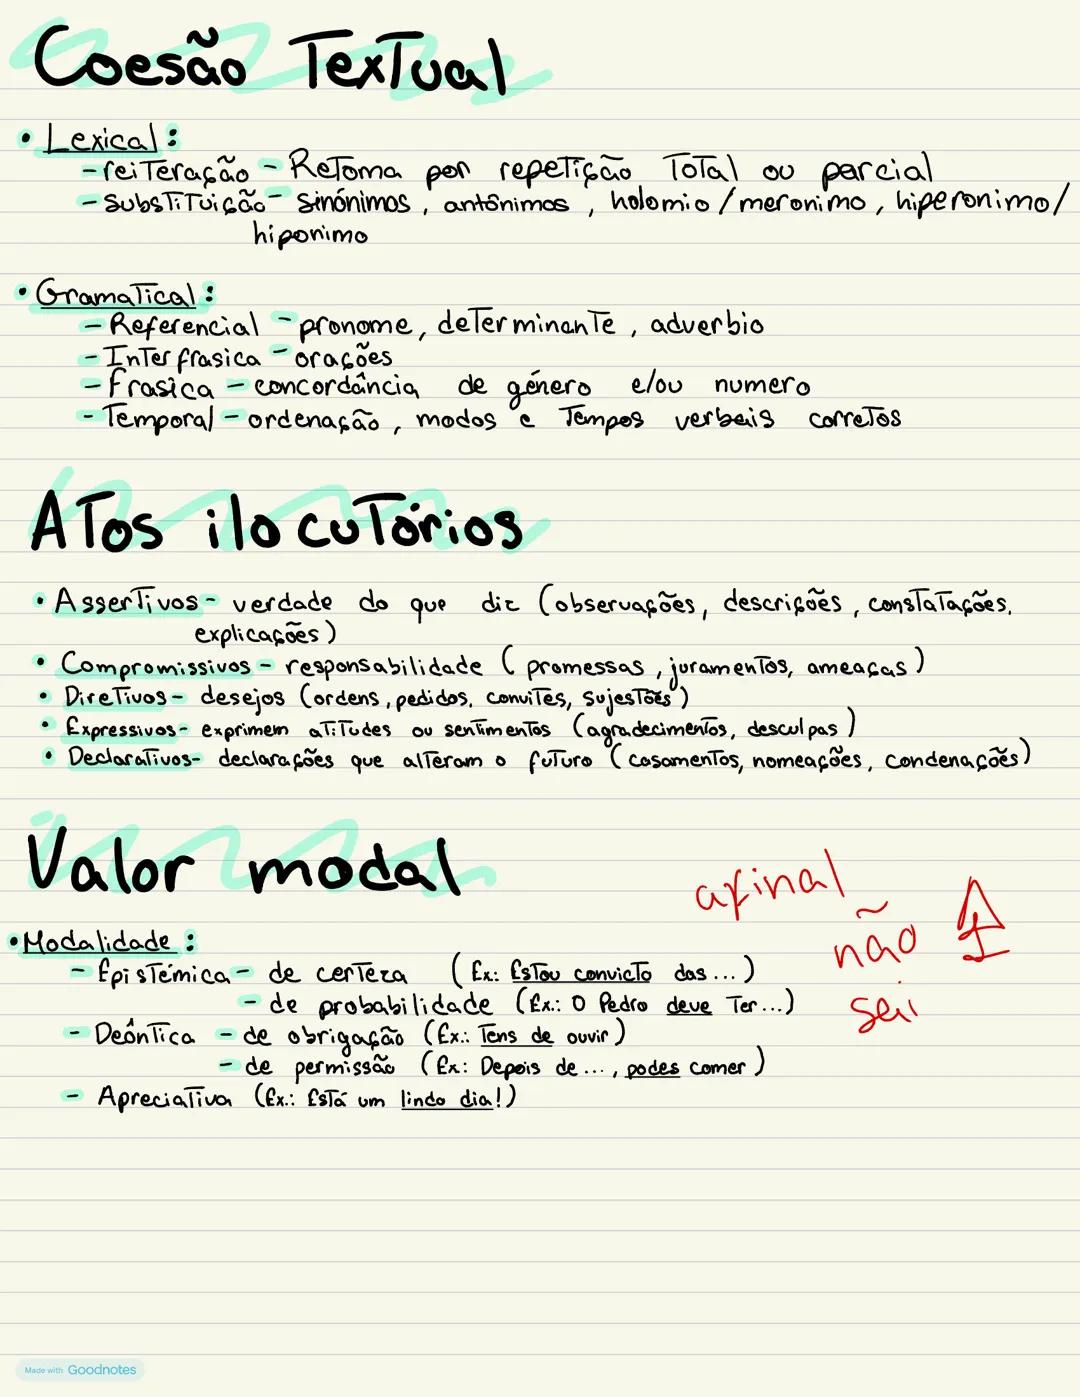 Coesão Textual
• Lexical:
- reiteração - Retoma por repetição total ou parcial
- substituição - sinónimos, antónimos, holomio/meronimo, hiperonimo/
hiponimo
• Gramatical:
- Referencial - pronome, determinante, adverbio
- Interfrasica - orações
- frasica - concordância de género e/ou numero
- Temporal - ordenação, modos e tempos verbais corretos
Atos ilocutórios
• Assertivos - verdade do que diz (observações, descrições, constatações,
explicações)
• Compromissivos - responsabilidade (promessas, juramentos, ameaças)
• Diretivos - desejos (ordens, pedidos, convites, sujestões)
• Expressivos - exprimem atitudes ou sentimentos (agradecimentos, desculpas)
• Declarativos - declarações que alteram o futuro (casamentos, nomeações, condenações)
Valor modal
afinal
não
sei
• Modalidade:
- Epistémica - de certeza (Ex.: Estou convicto das...)
- de probabilidade (Ex.: O Pedro deve ter...)
- Deôntica - de obrigação (Ex.: Tens de ouvir)
- de permissão (Ex: Depois de..., podes comer)
- Apreciativa (Ex.: Está um lindo dia!)
Made with Goodnotes